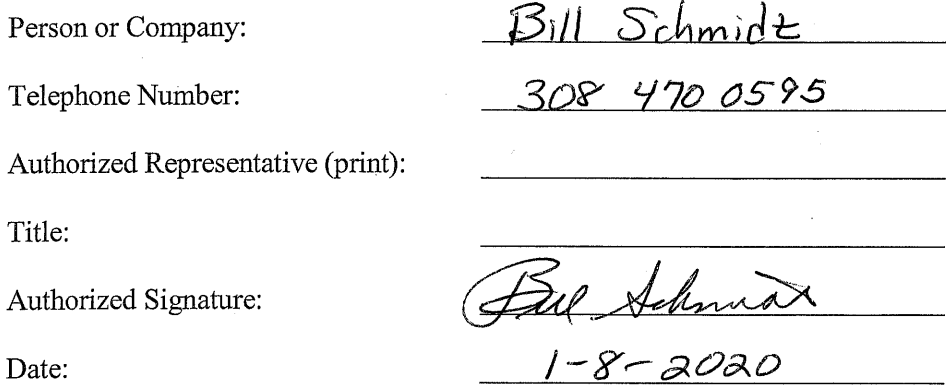 Person or Company: Bill Schmidt
Telephone Number: 308 470 0595
Authorized Representative (print):
Title:
Authorized Signature: Bill Schmidt
Date: 1-8-2020